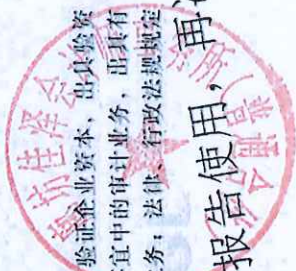 验证企业资本、出具验资
宜中的审计业务，出具有
务；法律、行政法规规定
报告使用，再
坊佳泽会